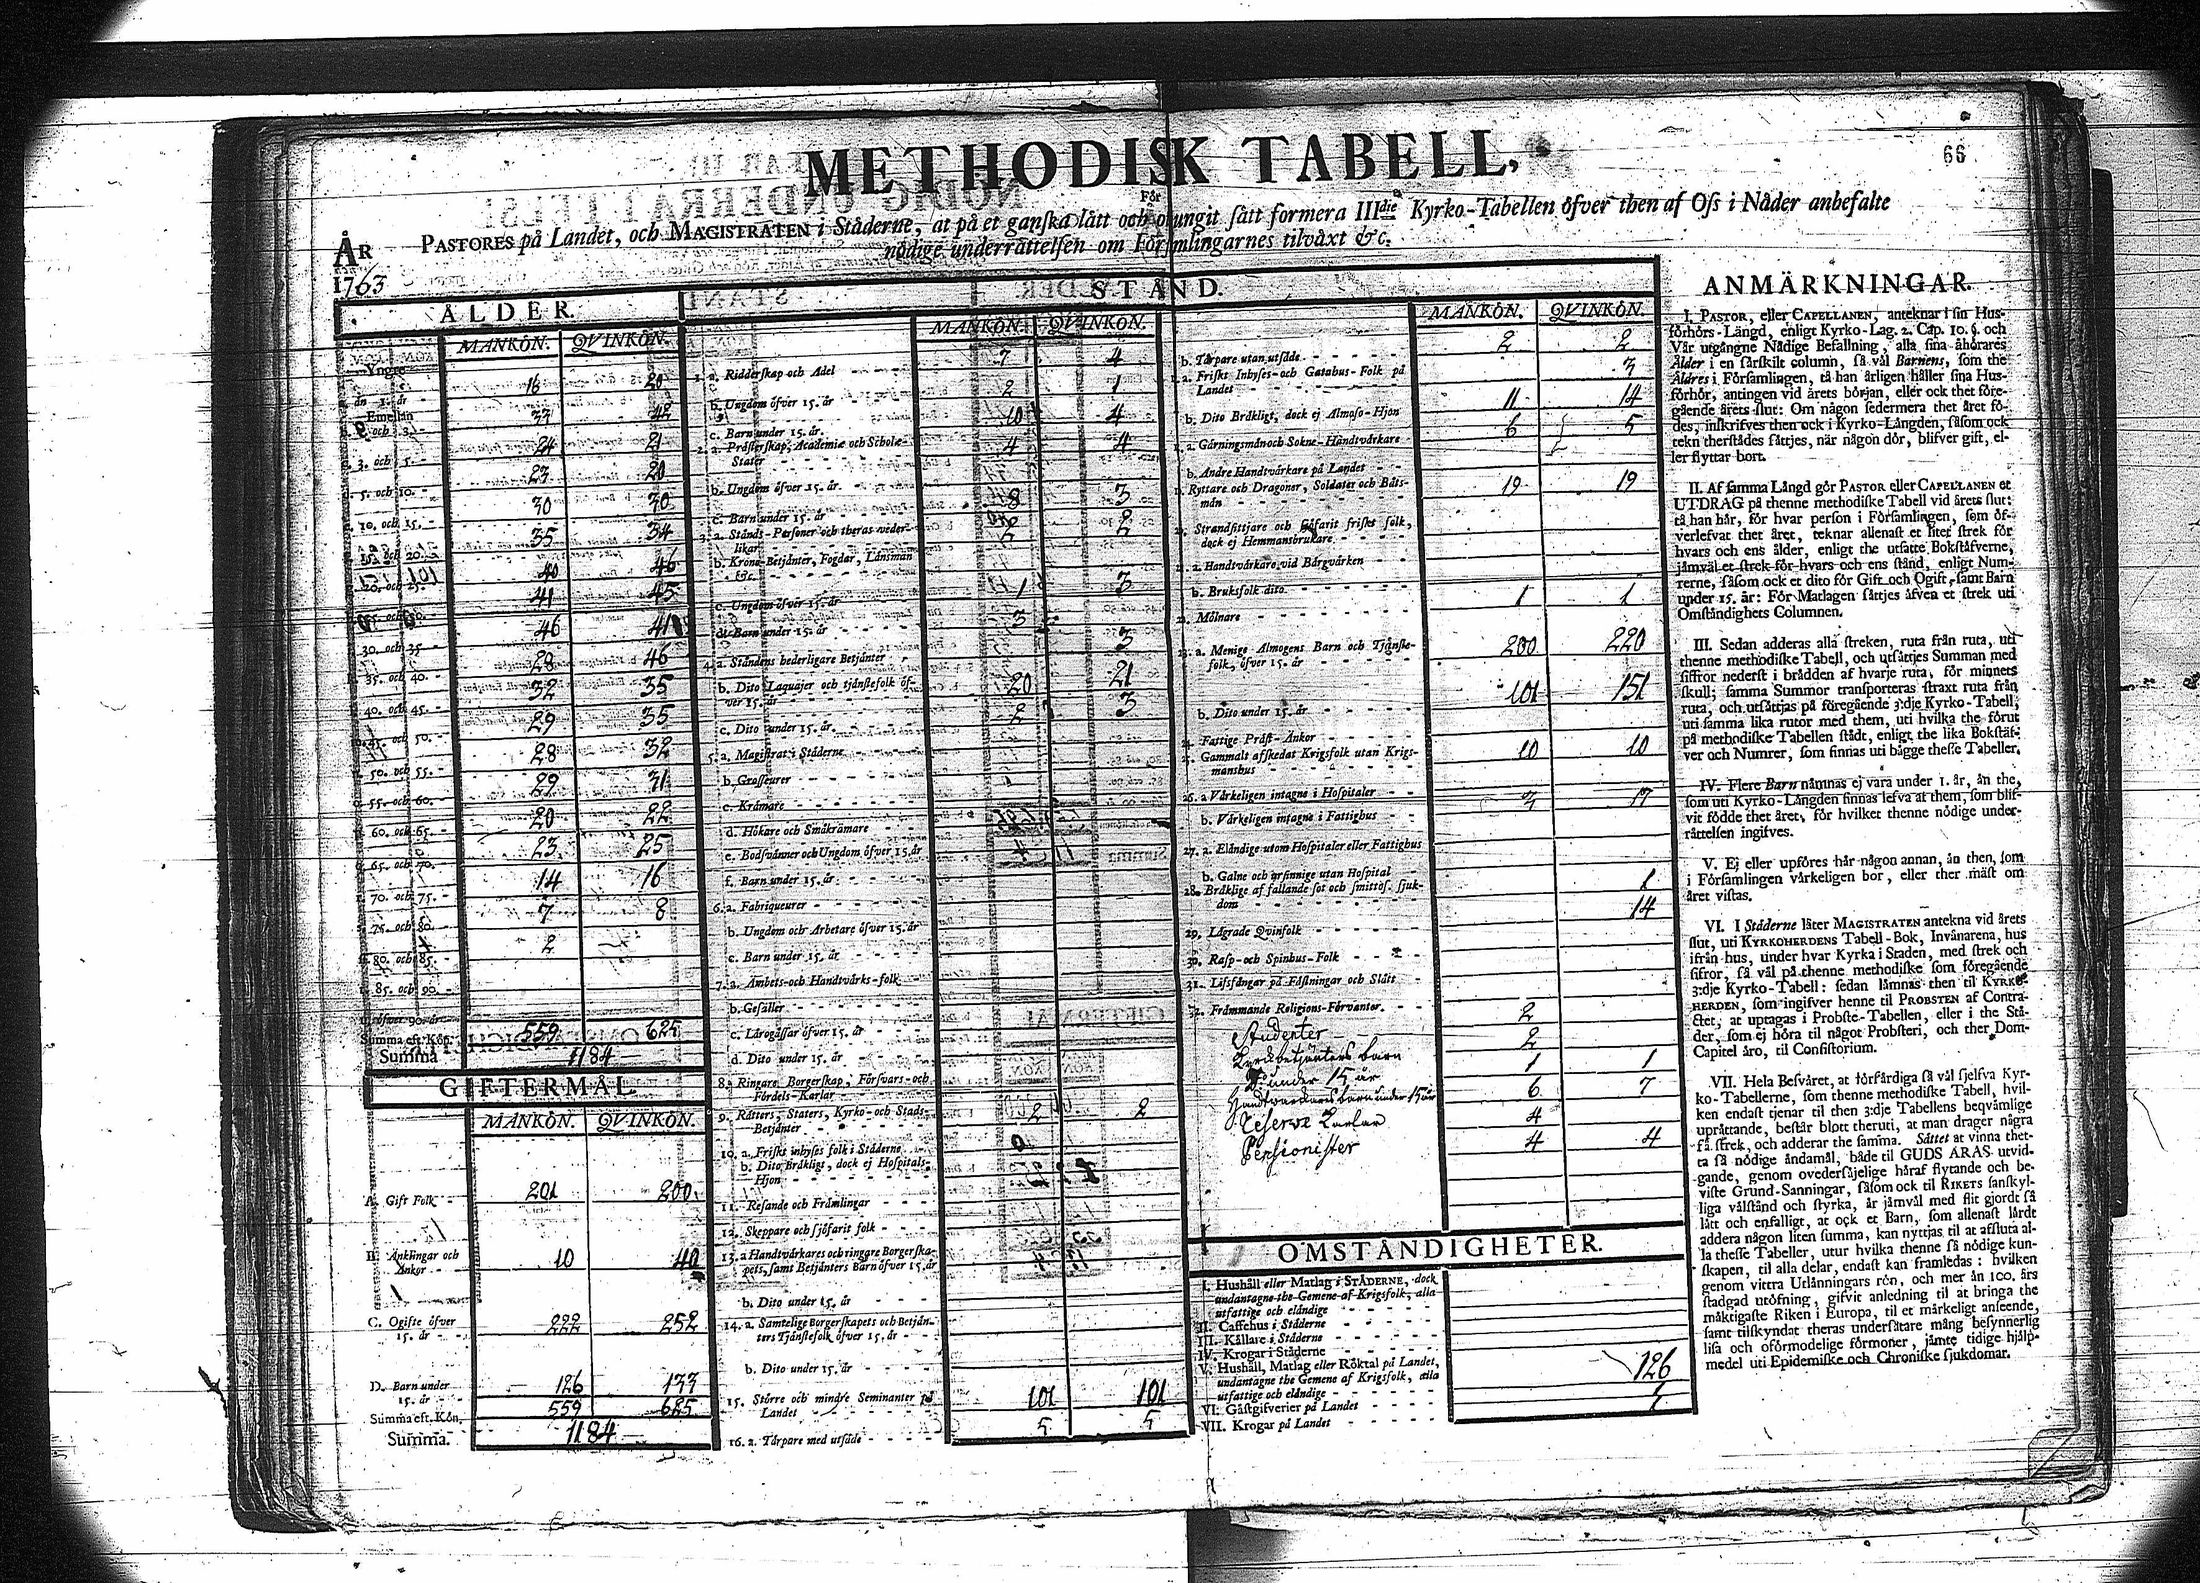 66
METHODISK TABELL,
För
PASTORES på Landet, och MAGISTRATEN i Städerne, at på et ganska lätt och otungit sätt formera IIIdie Kyrko-Tabellen öfver then af Oss i Nåder anbefalte
nödige underrättelsen om Församlingarnes tilväxt &c.
ÅR
1763
ÅLDER.
MANKÖN. QVINKÖN.
Yngre än 1. år - 18 20
Emellan 1. och 3. - 33 42
3. och 5. - 24 21
5. och 10. - 27 20
10. och 15. - 30 30
15. och 20. - 35 34
20. och 25. - 40 46
25. och 30. - 41 45
30. och 35. - 46 41
35. och 40. - 28 46
40. och 45. - 32 35
45. och 50. - 29 35
50. och 55. - 28 32
55. och 60. - 29 31
60. och 65. - 20 22
65. och 70. - 23 25
70. och 75. - 14 16
75. och 80. - 7 8
80. och 85. - 2
85. och 90. -
öfver 90. år -
Summa eft. Kön. 559 625
Summa 1184
GIFTERMÅL
MANKÖN. QVINKÖN.
A. Gift Folk - 201 200
B. Änklingar och Änkor - - 10 40
C. Ogifte öfver 15. år - - 222 252
D. Barn under 15. år - - 126 133
Summa eft. Kön. 559 625
Summa. 1184
STÅND.
MANKÖN. QVINKÖN.
1. a. Ridderskap och Adel - - 7 4
b. Ungdom öfver 15. år 2 1
c. Barn under 15. år. 10 4
2. a. Prästerskap, Academiæ och Scholæ-Stater - - 4 4
b. Ungdom öfver 15. år. - -
c. Barn under 15. år - - 8 3
3. a. Stånds-Personer och theras vederlikar 2 2
b. Krono-Betjänter, Fogdar, Länsmän &c.
c. Ungdom öfver 15. år 1 3
d. Barn under 15. år - - 3
4. a. Ståndens hederligare Betjänter 3
b. Dito Laquajer och tjänstefolk öfver 15. år 20 21
c. Dito under 15. år. - - 2 3
5. a. Magistrat i Städerne - -
b. Grosseurer - -
c. Krämare - -
d. Hökare och Småkrämare
e. Bodsvänner och Ungdom öfver 15. år
f. Barn under 15. år. - -
6. a. Fabriqueurer - -
b. Ungdom och Arbetare öfver 15. år
c. Barn under 15. år - -
7. a. Ämbets- och Handtvärks-folk
b. Gesäller - -
c. Lärogåssar öfver 15. år
d. Dito under 15. år
8. Ringare Borgerskap, Försvars- och Fördels-Karlar
9. Rätters, Staters, Kyrko- och Stads-Betjänter - - 2 2
10. a. Friskt inhyses folk i Städerne
b. Dito Bräkligt, dock ej Hospitals-Hjon
11. Resande och Främlingar
12. Skeppare och sjöfarit folk
13. a Handtvärkares och ringare Borgerskapets, samt Betjänters Barn öfver 15. år
b. Dito under 15. år
14. a. Samtelige Borgerskapets och Betjänters Tjänstefolk öfver 15. år
b. Dito under 15. år
15. Större och mindre Seminanter på Landet 101 101
16. a. Tårpare med utsäde 5 5
MANKÖN. QVINKÖN.
b. Tårpare utan utsäde - - 2 2
a. Friskt Inhyses- och Gatehus-Folk på Landet 3
b. Dito Bräkligt, dock ej Almoso-Hjon 11 14
a. Gärningsmän och Sokne-Handtvärkare 6 5
b. Andre Handtvärkare på Landet
Ryttare och Dragoner, Soldater och Båtsmän 19 19
Strandsittjare och sjöfarit friskt folk, dock ej Hemmansbrukare
a. Handtvärkare vid Bärgvärken
b. Bruksfolk dito
Mölnare 1 1
a. Menige Almogens Barn och Tjänstefolk, öfver 15. år 200 220
b. Dito under 15. år 101 151
Fattige Präst-Änkor
Gammalt afskedat Krigsfolk utan Krigsmanshus 10 10
26. a Värkeligen intagne i Hospitaler
b. Värkeligen intagne i Fattighus
27. a. Eländige utom Hospitaler eller Fattighus
b. Galne och ursinnige utan Hospital
28. Bräklige af fallande sot och smittos. sjukdom 1
29. Lägrade Qvinfolk 14
30. Rasp- och Spinhus-Folk
31. Lifsfångar på Fästningar och Slått
32. Främmande Religions-Förvanter.
Studenter - 2
Kyrkbetjänters barn 2
under 15 år 1 1
Handtwärkares barn under 15 år 6 7
Reserve Karlar 4
Pensionister 4 4
OMSTÄNDIGHETER.
I. Hushåll eller Matlag i STÄDERNE, dock
undantagne the Gemene af Krigsfolk, alla
utfattige och eländige
II. Caffehus i Städerne
III. Källare i Städerne
IV. Krogar i Städerne
V. Hushåll, Matlag eller Röktal på Landet,
undantagne the Gemene af Krigsfolk, alla
utfattige och eländige 126
VI. Gästgifverier på Landet 1
VII. Krogar på Landet
ANMÄRKNINGAR.
I. PASTOR, eller CAPELLANEN, anteknar i sin Hus-
förhörs-Längd, enligt Kyrko-Lag. 2. Cap. 10. §. och
Vår utgångne Nådige Befallning, alla sina åhörares
Ålder i en särskilt column, så väl Barnens, som the
Äldres i Församlingen, tå han årligen håller sina Hus-
förhör, antingen vid årets början, eller ock thet före-
gående årets slut: Om någon sedermera thet året fö-
des, inskrifves then ock i Kyrko-Längden, såsom ock
tekn therstädes sättjes, när någon dör, blifver gift, el-
ler flyttar bort.
II. Af samma Längd gör PASTOR eller CAPELLANEN et
UTDRAG på thenne methodiske Tabell vid årets slut:
tå han här, för hvar person i Församlingen, som öf-
verlefvat thet året, teknar allenast et litet strek för
hvars och ens ålder, enligt the utsatte Bokstäfverne,
jämväl et strek för hvars och ens stånd, enligt Num-
rerne, såsom ock et dito för Gift och Ogift, samt Barn
under 15. år: För Matlagen sättjes äfven et strek uti
Omständighets Columnen.
III. Sedan adderas alla streken, ruta från ruta, uti
thenne methodiske Tabell, och utsättjes Summan med
siffror nederst i brädden af hvarje ruta, för minnets
skull; samma Summor transporteras straxt ruta från
ruta, och utsättjas på föregående 3:dje Kyrko-Tabell,
uti samma lika rutor med them, uti hvilka the förut
på methodiske Tabellen stådt, enligt the lika Bokstäf-
ver och Numrer, som finnas uti bägge thesse Tabeller.
IV. Flere Barn nämnas ej vara under 1. år, än the,
som uti Kyrko-Längden finnas lefva at them, som blif-
vit födde thet året, för hvilket thenne nödige under-
rättelsen ingifves.
V. Ej eller upföres här någon annan, än then, som
i Församlingen värkeligen bor, eller ther mäst om
året vistas.
VI. I Städerne låter MAGISTRATEN antekna vid årets
slut, uti KYRKOHERDENS Tabell-Bok, Invånarena, hus
ifrån hus, under hvar Kyrka i Staden, med strek och
sifror, så väl på thenne methodiske som föregående
3:dje Kyrko-Tabell: sedan lämnas then til KYRKO-
HERDEN, som ingifver henne til PROBSTEN af Contra-
ctet, at uptagas i Probste-Tabellen, eller i the Stä-
der, som ej höra til något Probsteri, och ther Dom-
Capitel äro, til Consistorium.
VII. Hela Besväret, at förfärdiga så väl sjelfva Kyr-
ko-Tabellerne, som thenne methodiske Tabell, hvil-
ken endast tjenar til then 3:dje Tabellens beqvämlige
uprättande, består blott theruti, at man drager några
få strek, och adderar the samma. Sättet at vinna thet-
ta så nödige ändamål, både til GUDS ÄRAS utvid-
gande, genom ovedersäjelige häraf flytande och be-
viste Grund-Sanningar, såsom ock til RIKETS sanskyl-
liga välstånd och styrka, är jämväl med flit gjordt så
lätt och enfalligt, at ock et Barn, som allenast lärdt
addera någon liten summa, kan nyttjas til at afsluta al-
la thesse Tabeller, utur hvilka thenne så nödige kun-
skapen, til alla delar, endast kan framledas: hvilken
genom vittra Utlänningars rön, och mer än 100. års
stadgad utöfning, gifvit anledning til at bringa the
mäktigaste Riken i Europa, til et märkeligt anseende,
samt tilskyndat theras undersåtare mång besynnerlig
lisa och oförmodelige förmoner, jämte tidige hjälp-
medel uti Epidemiske och Chroniske sjukdomar.